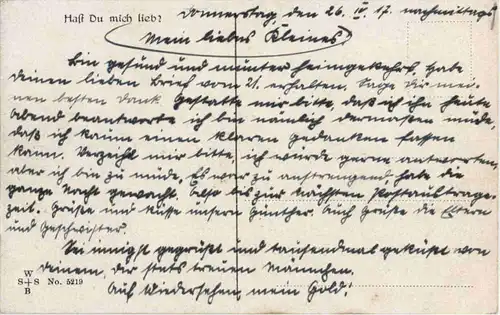 Hast Du mich lieb?
Donnerstag, den 26. IV. 17. nachmittags
Mein liebes Kleines!
Bin gesund und munter heimgekehrt. Habe
deinen lieben Brief vom 21. erhalten. Sage Dir mei-
nen besten Dank. Gestatte mir bitte, daß ich ihn heute
Abend beantworte ich bin nämlich dermaßen müde,
daß ich kaum einen klaren Gedanken fassen
kann. Verzeih mir bitte, ich würde gerne antworten,
aber ich bin zu müde. Es war zu anstrengend, habe die
ganze Nacht gewacht. Also bis zur nächsten Postaustrage-
zeit. Grüße und küsse unsern Günther. Auch Grüße die Eltern
und Geschwister.
Sei innigst gegrüßt und tausendmal geküßt von
deinem, der stets treuen Männchen.
Auf Wiedersehen, mein Gold!
W
S+S No. 5219
B